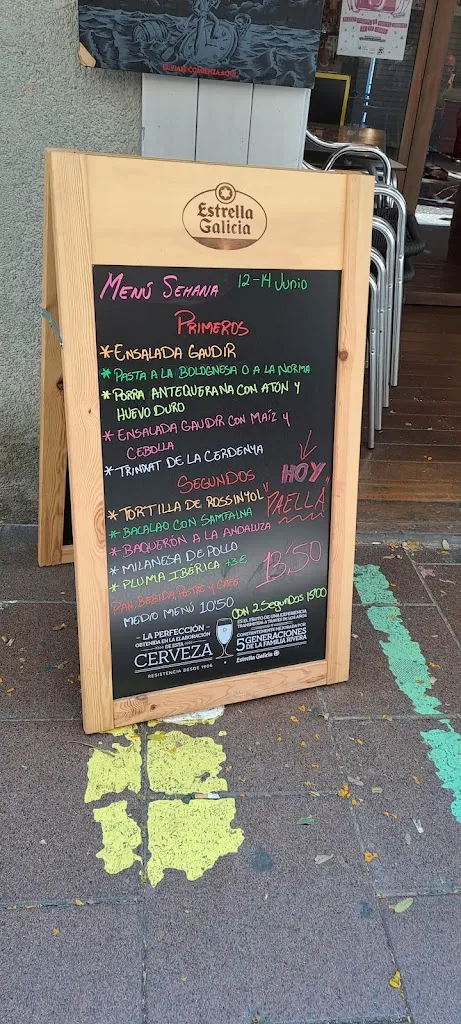 EL VIAJE COMIENZA AQUÍ
Estrella
Galicia
MENÚ SEMANA 12-14 Junio
PRIMEROS
*ENSALADA GAUDIR
*PASTA A LA BOLOGNESA O A LA NORMA
*PORRA ANTEQUERANA CON ATÚN Y
HUEVO DURO
*ENSALADA GAUDIR CON MAÍZ Y
CEBOLLA
*TRINXAT DE LA CERDENYA
SEGUNDOS
*TORTILLA DE ROSSINYOL
*BACALAO CON SAMFAINA
*BAQUERÓN A LA ANDALUZA
*MILANESA DE POLLO
*PLUMA IBÉRICA +3€
HOY
"PAELLA"
13'50
PAN, BEBIDA, POSTRE Y CAFÉ
MEDIO MENÚ 10'50
CON 2 SEGUNDOS 15'00
- LA PERFECCIÓN -
OBTENIDA EN LA ELABORACIÓN
DE ESTA
CERVEZA
RESISTENCIA DESDE 1906
ES EL FRUTO DE UNA EXPERIENCIA
TRANSMITIDA A TRAVÉS DE LOS AÑOS
CONSTANTEMENTE MEJORADA POR
5 GENERACIONES
DE LA FAMILIA RIVERA
Estrella Galicia